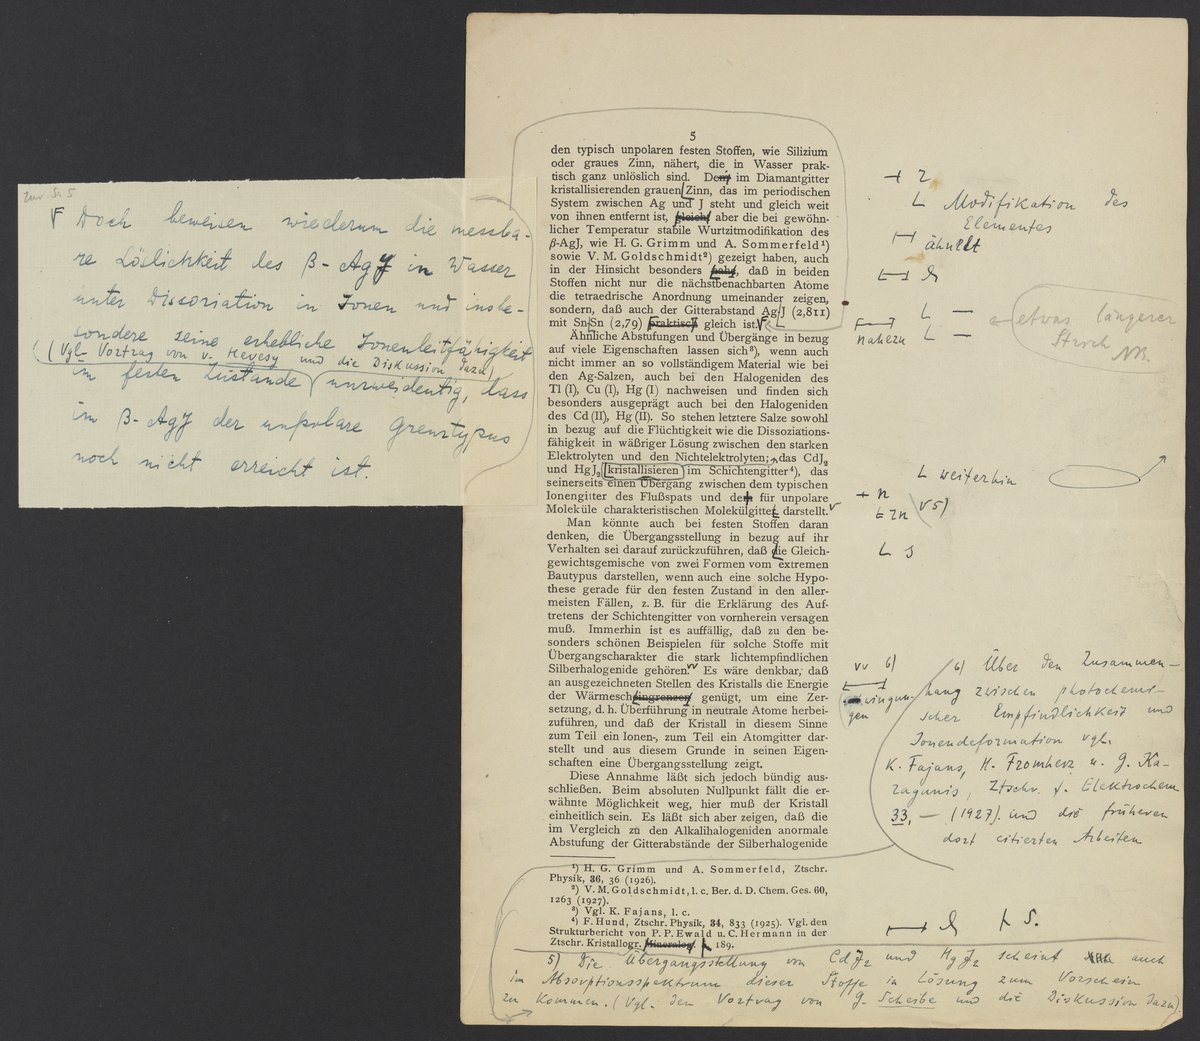 zur S. 5
F Doch beweisen wiederum die messba-
re Löslichkeit des β-AgJ in Wasser
unter Dissoziation in Ionen und insbe-
sondere seine erhebliche Ionenleitfähigkeit
(Vgl. Vortrag von v. Hevesy und die Diskussion dazu)
im festen Zustande unzweideutig, dass
im β-AgJ der unpolare Grenztypus
noch nicht erreicht ist.
5
den typisch unpolaren festen Stoffen, wie Silizium
oder graues Zinn, nähert, die in Wasser prak-
tisch ganz unlöslich sind. Dem im Diamantgitter
kristallisierenden grauen Zinn, das im periodischen
System zwischen Ag und J steht und gleich weit
von ihnen entfernt ist, gleicht aber die bei gewöhn-
licher Temperatur stabile Wurtzitmodifikation des
β-AgJ, wie H. G. Grimm und A. Sommerfeld¹)
sowie V. M. Goldschmidt²) gezeigt haben, auch
in der Hinsicht besonders nahe, daß in beiden
Stoffen nicht nur die nächstbenachbarten Atome
die tetraedrische Anordnung umeinander zeigen,
sondern, daß auch der Gitterabstand Ag-J (2,811)
mit Sn-Sn (2,79) praktisch gleich ist. F
Ähnliche Abstufungen und Übergänge in bezug
auf viele Eigenschaften lassen sich³), wenn auch
nicht immer an so vollständigem Material wie bei
den Ag-Salzen, auch bei den Halogeniden des
Tl (I), Cu (I), Hg (I) nachweisen und finden sich
besonders ausgeprägt auch bei den Halogeniden
des Cd (II), Hg (II). So stehen letztere Salze sowohl
in bezug auf die Flüchtigkeit wie die Dissoziations-
fähigkeit in wäßriger Lösung zwischen den starken
Elektrolyten und den Nichtelektrolyten; das CdJ₂
und HgJ₂ kristallisieren im Schichtengitter⁴), das
seinerseits einen Übergang zwischen dem typischen
Ionengitter des Flußspats und dem für unpolare
Moleküle charakteristischen Molekülgitter darstellt.
Man könnte auch bei festen Stoffen daran
denken, die Übergangsstellung in bezug auf ihr
Verhalten sei darauf zurückzuführen, daß die Gleich-
gewichtsgemische von zwei Formen vom extremen
Bautypus darstellen, wenn auch eine solche Hypo-
these gerade für den festen Zustand in den aller-
meisten Fällen, z. B. für die Erklärung des Auf-
tretens der Schichtengitter von vornherein versagen
muß. Immerhin ist es auffällig, daß zu den be-
sonders schönen Beispielen für solche Stoffe mit
Übergangscharakter die stark lichtempfindlichen
Silberhalogenide gehören. Es wäre denkbar, daß
an ausgezeichneten Stellen des Kristalls die Energie
der Wärmeschwingrenzen genügt, um eine Zer-
setzung, d. h. Überführung in neutrale Atome herbei-
zuführen, und daß der Kristall in diesem Sinne
zum Teil ein Ionen-, zum Teil ein Atomgitter dar-
stellt und aus diesem Grunde in seinen Eigen-
schaften eine Übergangsstellung zeigt.
Diese Annahme läßt sich jedoch bündig aus-
schließen. Beim absoluten Nullpunkt fällt die er-
wähnte Möglichkeit weg, hier muß der Kristall
einheitlich sein. Es läßt sich aber zeigen, daß die
im Vergleich zu den Alkalihalogeniden anormale
Abstufung der Gitterabstände der Silberhalogenide
¹) H. G. Grimm und A. Sommerfeld, Ztschr.
Physik, 36, 36 (1926).
²) V. M. Goldschmidt, l. c. Ber. d. D. Chem. Ges. 60,
1263 (1927).
³) Vgl. K. Fajans, l. c.
⁴) F. Hund, Ztschr. Physik, 34, 833 (1925). Vgl. den
Strukturbericht von P. P. Ewald u. C. Hermann in der
Ztschr. Kristallogr. Mineralog. 189.
Modifikation des
Elementes
ähnelt
nahezu
etwas längerer
Strich
NB.
weiterhin
n
5)
s
vv 6)
wingun-
gen
6) Über den Zusammen-
hang zwischen photochemi-
scher Empfindlichkeit und
Ionendeformation vgl.
K. Fajans, H. Fromherz u. G. Ka-
ragunis, Ztschr. f. Elektrochem
33, — (1927) und die früheren
dort citierten Arbeiten
S.
5) Die Übergangsstellung von CdJ₂ und HgJ₂ scheint auch
im Absorptionsspektrum dieser Stoffe in Lösung zum Vorschein
zu kommen. (Vgl. den Vortrag von G. Scheibe und die Diskussion dazu)